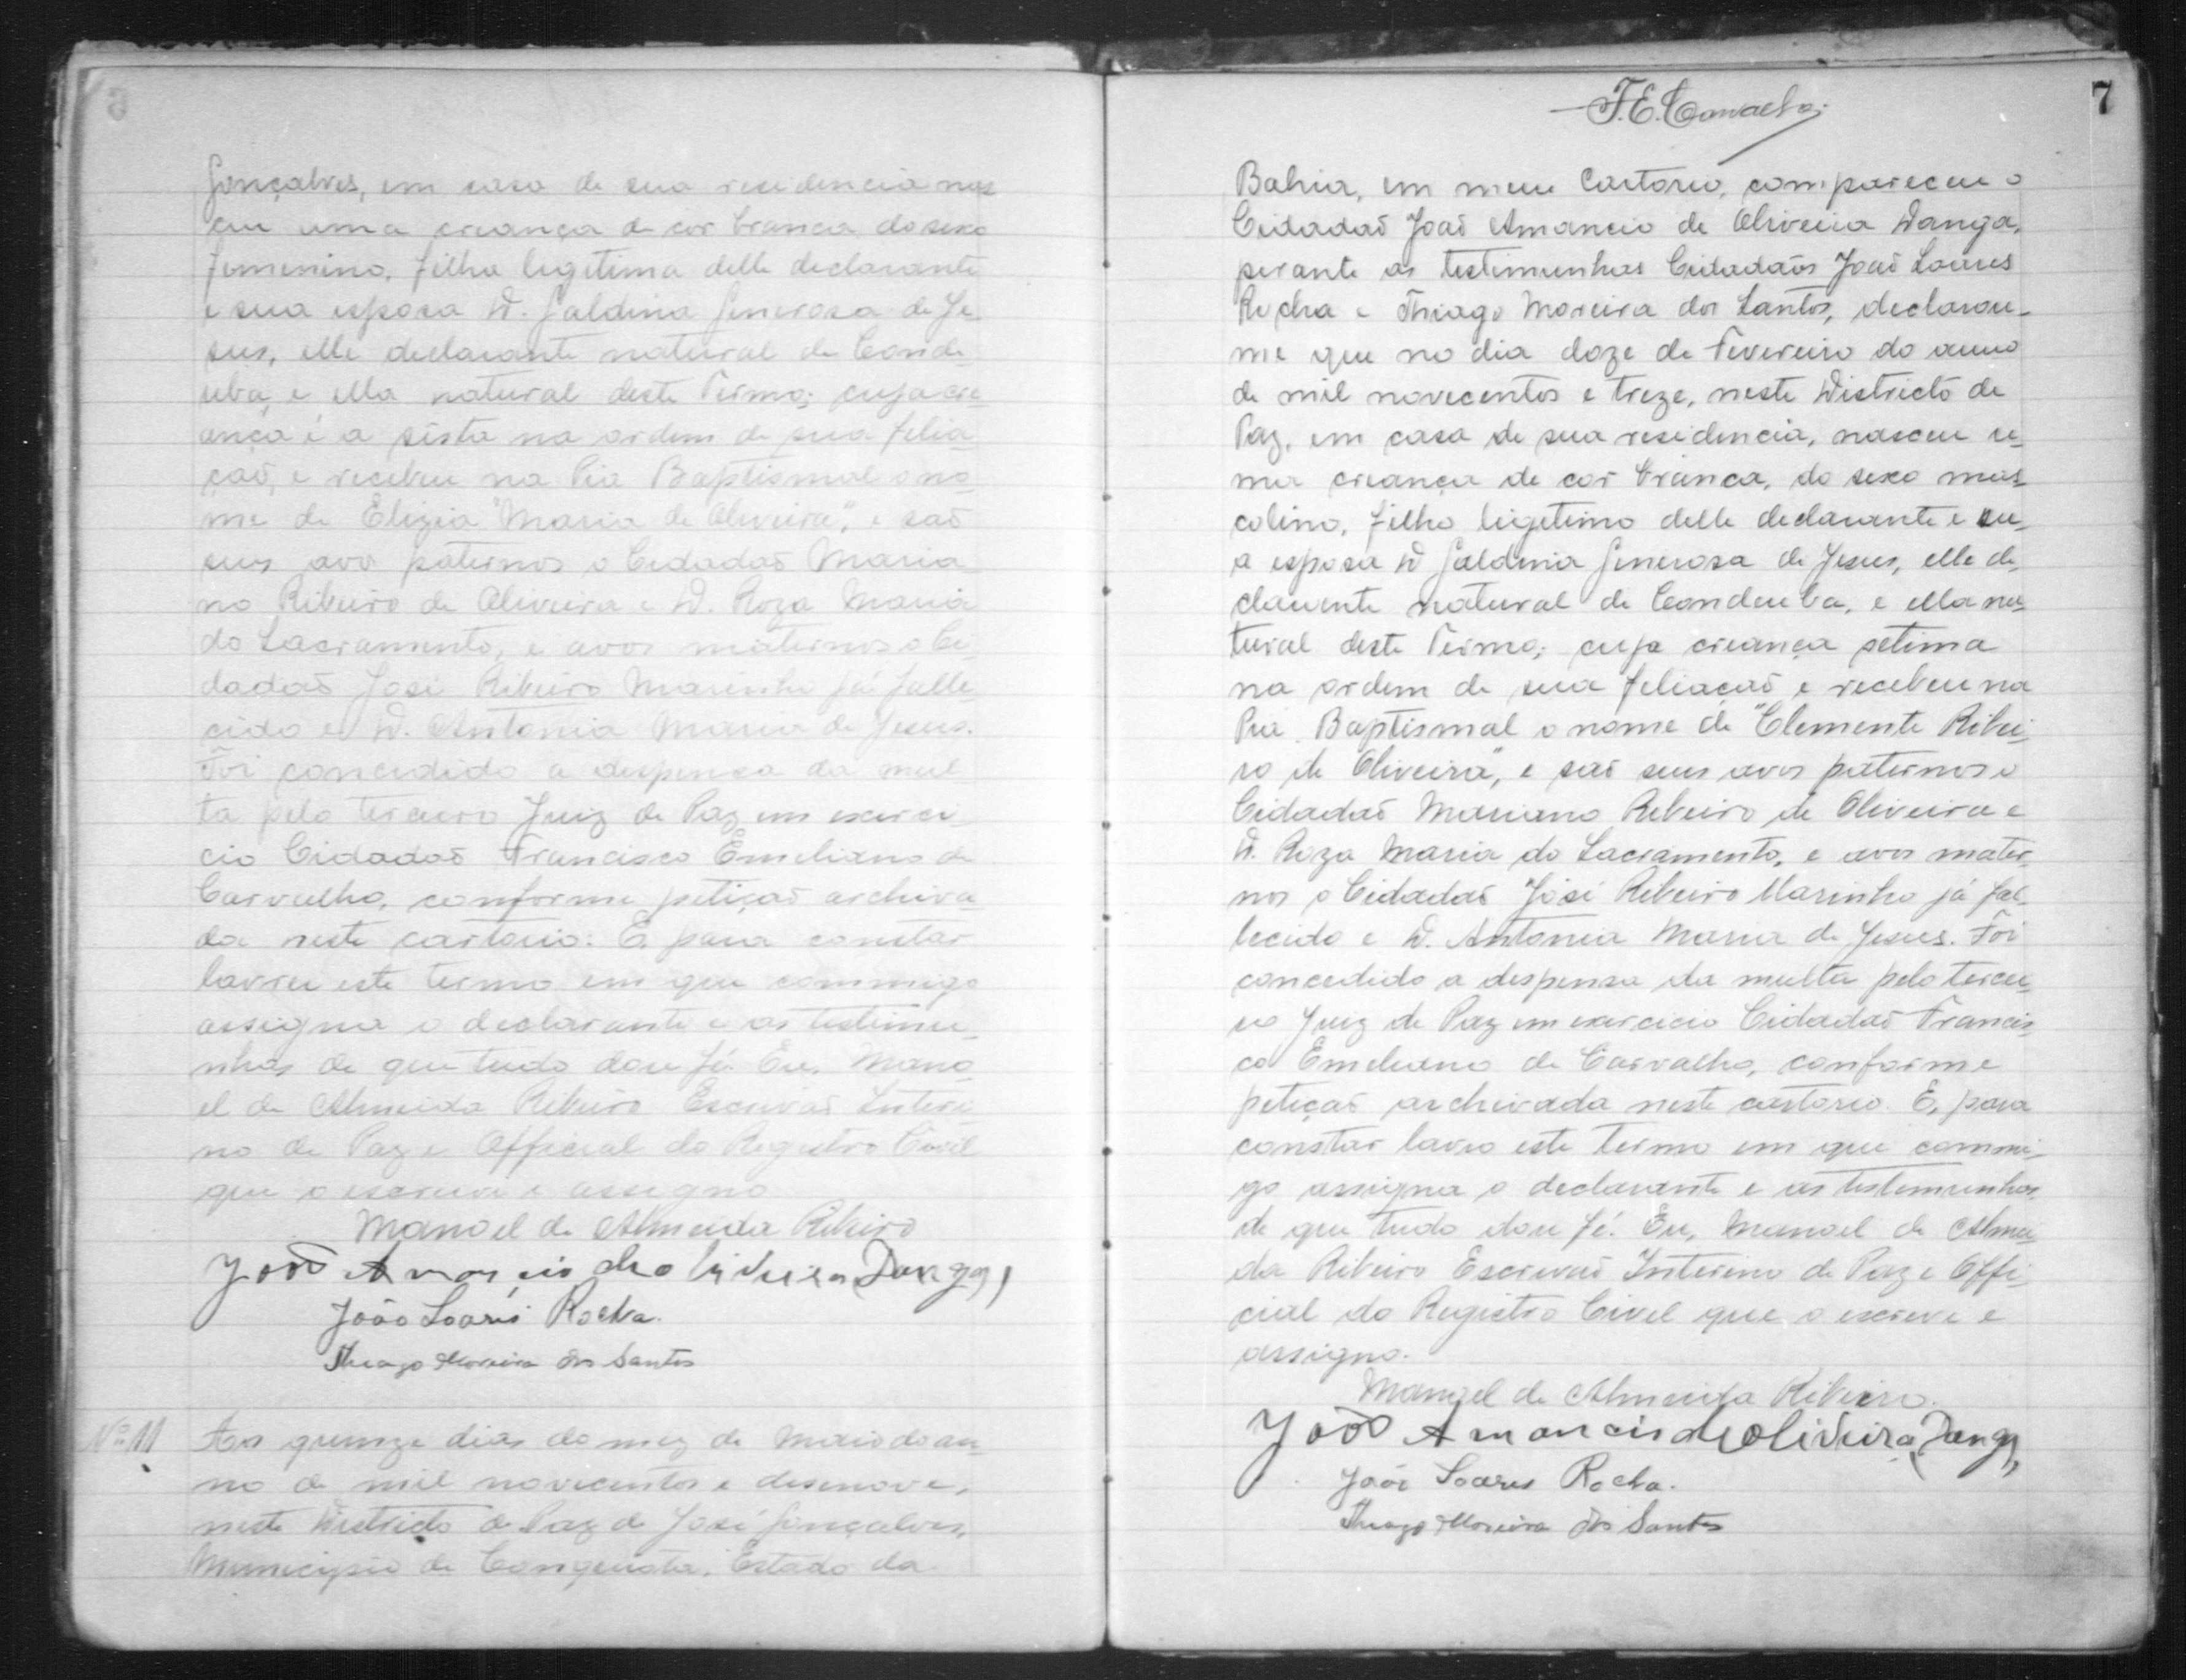 Gonçalves, em casa de sua residencia nas
ceu uma creança de cor branca do sexo
femenino, filha legitima delle declarante
e sua esposa D. Galdina Generosa de Je_
sus, elle declarante natural de Conde_
uba, e ella natural deste Termo; cuja cre_
ança é a sista na ordem de sua felia_
çaõ, e recebeu na Pia Baptismal o no_
me de Elizia "Maria de Oliveira", e saõ
seus avos paternos o Cidadaõ Maria_
no Ribeiro de Oliveira e D. Roza Maria
do Sacramento, e avos maternos o Ci_
dadaõ José Ribeiro Marinho já falle_
cido e D. Antonia Maria de Jesus.
Foi concedido a despensa da mul_
ta pelo terceiro Juiz de Paz em exerci_
cio Cidadaõ Francisco Emeliano de
Carvalho, conforme petiçaõ archiva_
da neste cartorio. E, para constar
lavrei este termo em que commigo
assigna o declarante e as testemu_
nhas de que tudo dou fé. Eu, Mano_
el de Almeida Ribeiro Escrivaõ Interi_
no de Paz e Official do Registro Civil
que o escrevi e assigno
Manoel de Almeida Ribeiro
Joaõ Amancio de oliveira Danga,
João Soares Rocha.
Thiago Moreira dos Santos
Nº 11 Aos quinze dias do mez de Maio do an_
no de mil novecentos e desenove,
neste Districto de Paz de José Gonçalves,
Municipio de Conquista, Estado da
7
F.E. Carvalho.
Bahia, em meu Cartorio, compareceu o
Cidadaõ Joaõ Amancio de Oliveira Danga,
perante as testimunhas Cidadaõs Joaõ Soares
Rocha e Thiago Moreira dos Santos, declarou_
me que no dia doze de Fevereiro do anno
de mil novecentos e treze, neste Districto de
Paz, em casa de sua residencia, nasceu u_
ma creança de cor branca, do sexo mas_
colino, filho ligetimo delle declarante e su_
a esposa D Galdina Generosa de Jesus, elle de_
clarante natural de Condeuba, e ella na_
tural deste Termo; cuja creança setima
na ordem de sua feliaçaõ e recebeu na
Pia Baptismal o nome de "Clemente Ribei_
ro de Oliveira", e saõ seus avos paternos o
Cidadaõ Mariano Ribeiro de Oliveira e
D. Roza Maria do Sacramento, e avos mater_
nos o Cidadaõ José Ribeiro Marinho já fal_
lecido e D. Antonia Maria de Jesus. Foi
concedido a despensa da multa pelo tercei_
ro Juiz de Paz em exercicio Cidadaõ Francis_
co Emeliano de Carvalho, conforme
petiçaõ archivada neste cartorio. E, para
constar lavro este termo em que commi_
go assigna o declarante e as testemunhas
de que tudo dou fé. Eu, Manoel de Almei_
da Ribeiro Escrivaõ Interino de Paz e Offi_
cial do Registro Civel que o escreve e
assigno.
Manoel de Almeida Ribeiro.
Joaõ Amancio de oliveira Danga,
João Soares Rocha.
Thiago Moreira dos Santos